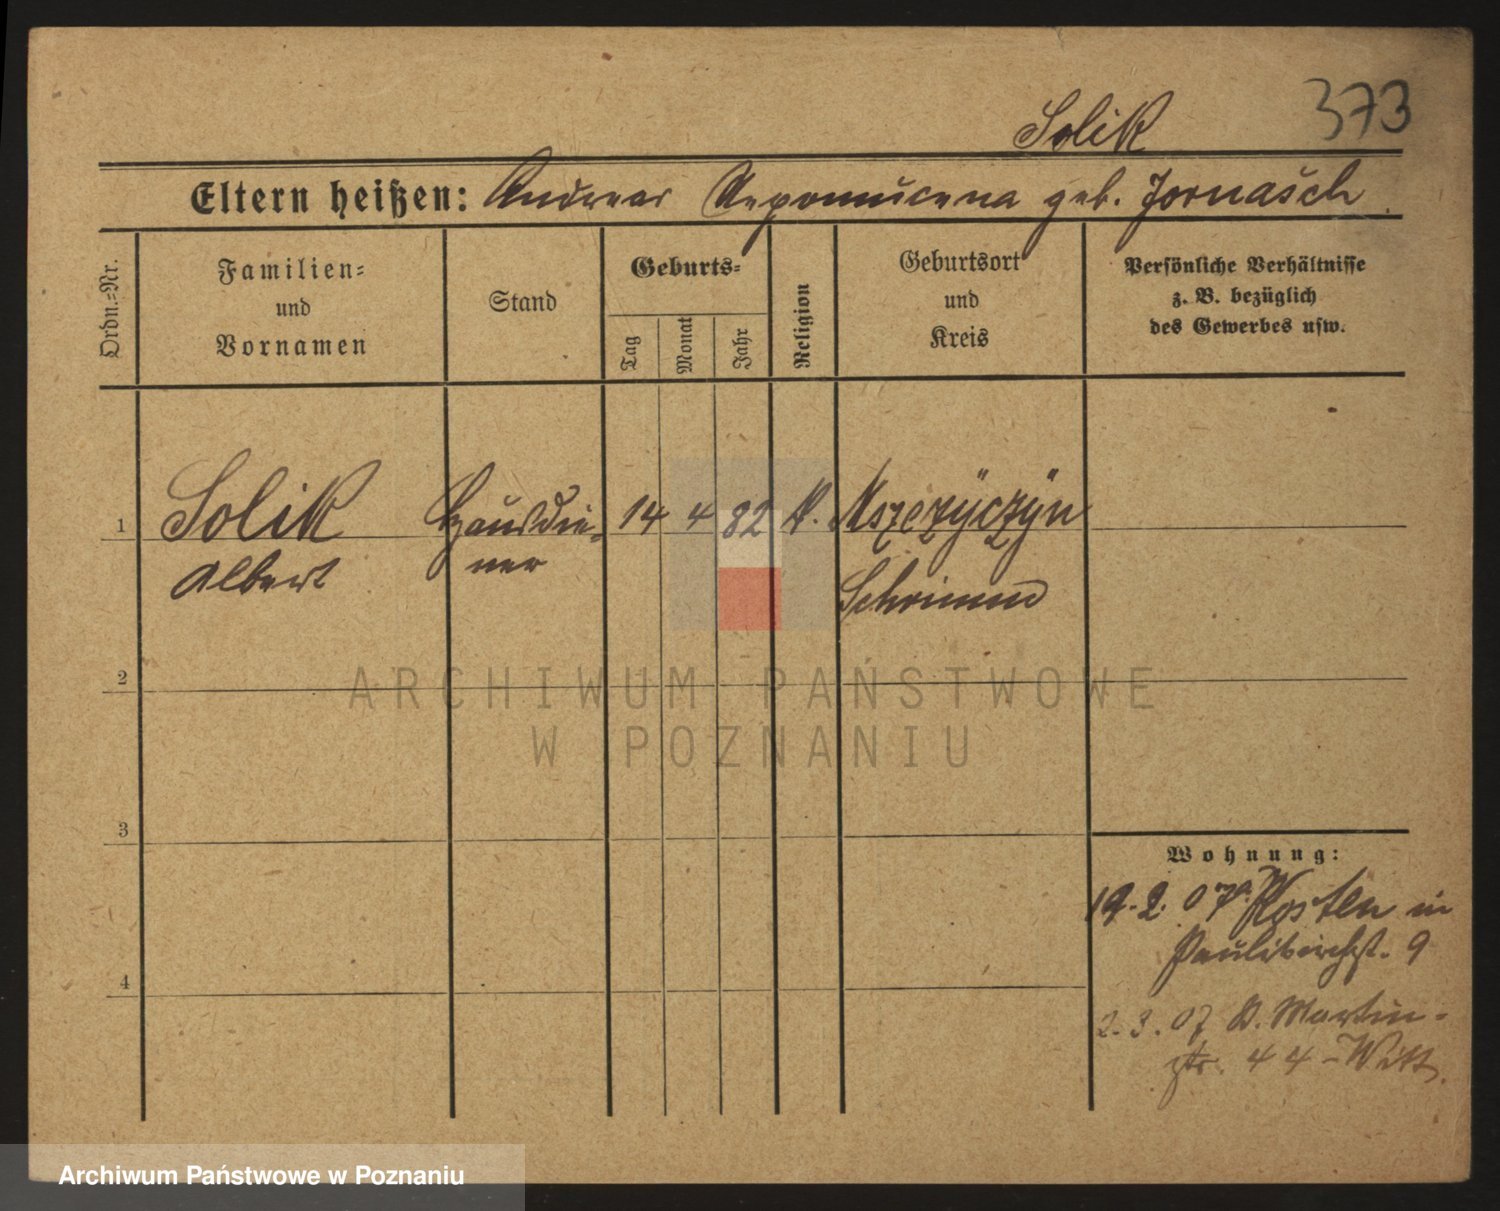 373
Solik
Eltern heißen: Andreas Nepomucena geb. Jornasch
Ordn.-Nr.
Familien-
und
Vornamen
Stand
Geburts-
Tag
Monat
Jahr
Religion
Geburtsort
und
Kreis
Persönliche Verhältnisse
z. B. bezüglich
des Gewerbes usw.
1
Solik
Albert
Hausdie-
ner
14
4
82
K.
Mszczyczyn
Schrimm
2
ARCHIWUM PAŃSTWOWE
W POZNANIU
3
4
Wohnung:
19.2.07 a Kosten in
Paulikirchst. 9
2.3.07 St. Martin-
str. 44-Witt
Archiwum Państwowe w Poznaniu